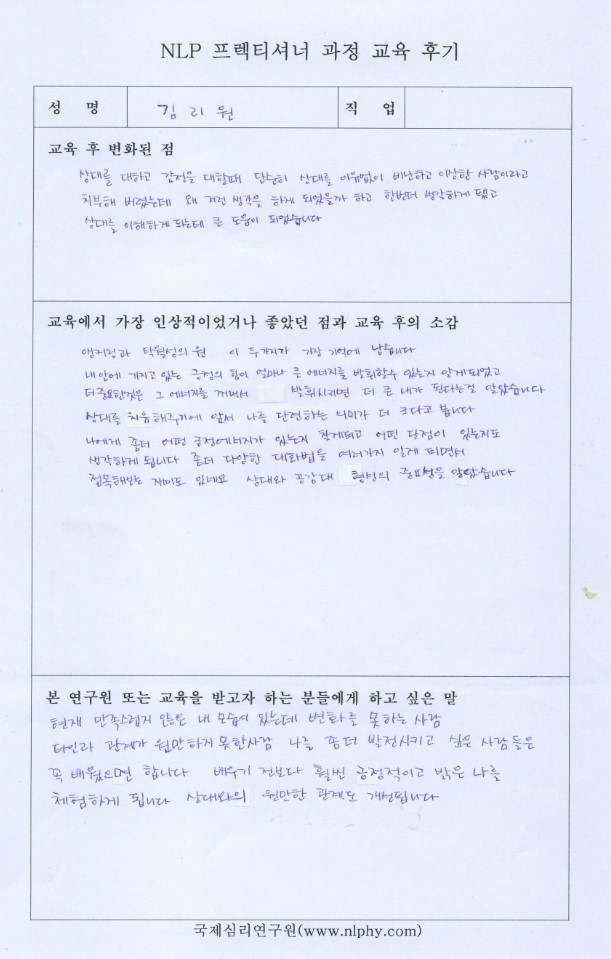 NLP 프렉티셔너 과정 교육 후기
성 명 김리원 직 업
교육 후 변화된 점
상대를 대하고 감정을 대할때 단순히 상대를 이유없이 비난하고 이상한 사람이라고
치부해 버렸는데 왜 저런 생각을 하게 되었을까 하고 한번더 생각하게 됐고
상대를 이해하게 되는데 큰 도움이 되었습니다
교육에서 가장 인상적이었거나 좋았던 점과 교육 후의 소감
앵커링과 탁월성의 원 이 두가지가 가장 기억에 남습니다
내안에 가지고 있는 긍정의 힘이 얼마나 큰 에너지를 발휘할수 있는지 알게되었고
더중요한것은 그 에너지를 꺼내서 발휘시키면 더 큰 내가 된다는걸 알았습니다
상대를 치유해주기에 앞서 나를 단련하는 의미가 더 크다고 봅니다
나에게 좀더 어떤 긍정에너지가 있는지 찾게되고 어떤 단점이 있는지도
생각하게 됩니다 좀더 다양한 대화법을 여러가지 알게 되면서
접목해보는 재미도 있네요 상대와 공감대 형성의 중요성을 알았습니다
본 연구원 또는 교육을 받고자 하는 분들에게 하고 싶은 말
현재 만족스럽지 않은 내 모습이 있는데 변화를 못하는 사람
타인과 관계가 원만하지 못한사람 나를 좀더 발전시키고 싶은 사람들은
꼭 배웠으면 합니다 배우기 전보다 훨씬 긍정적이고 밝은 나를
체험하게 됩니다 상대와의 원만한 관계도 개선됩니다
국제심리연구원(www.nlphy.com)